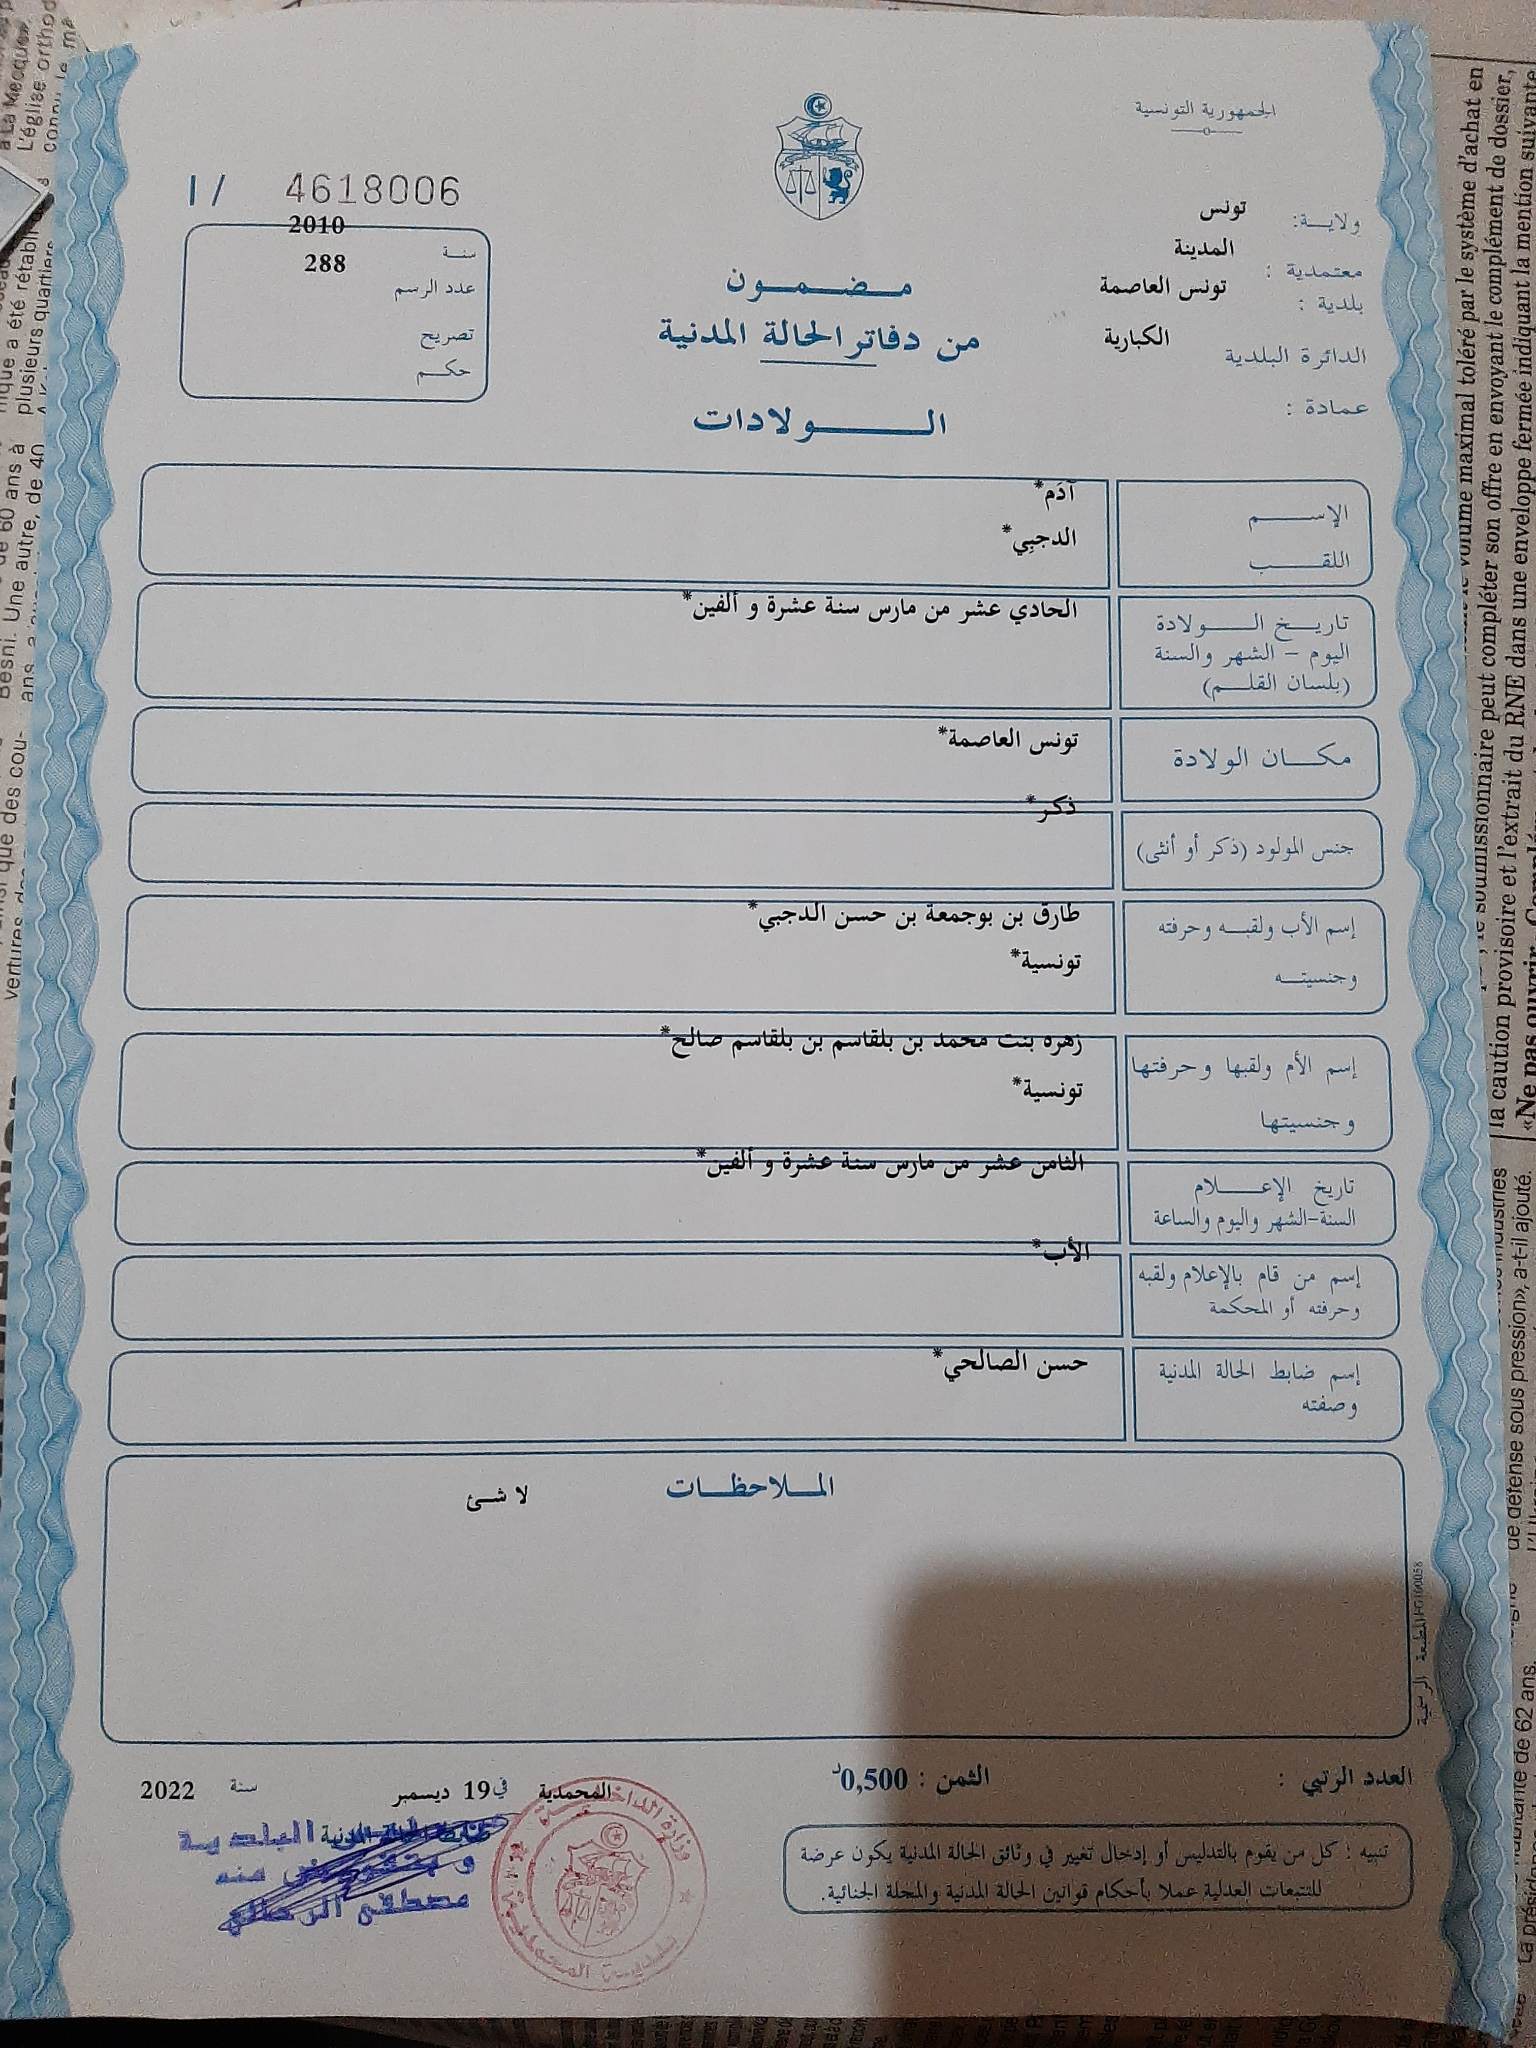 الجمهورية التونسية
ولاية: تونس
معتمدية : المدينة
بلدية : تونس العاصمة
الدائرة البلدية الكبارية
عمادة :
I / 4618006
سنة 2010
عدد الرسم 288
تصريح
حكم
مضمون
من دفاتر الحالة المدنية
الولادات
الإسم آدَم*
اللقب الدجبِي*
تاريخ الولادة الحادي عشر من مارس سنة عشرة و ألفين*
اليوم – الشهر والسنة
(بلسان القلم)
مكان الولادة تونس العاصمة*
جنس المولود (ذكر أو أنثى) ذكر*
إسم الأب ولقبه وحرفته طارق بن بوجمعة بن حسن الدجبي*
وجنسيته تونسية*
إسم الأم ولقبها وحرفتها زهرة بنت محمد بن بلقاسم بن بلقاسم صالح*
وجنسيتها تونسية*
تاريخ الإعلام الثامن عشر من مارس سنة عشرة و ألفين*
السنة-الشهر واليوم والساعة
إسم من قام بالإعلام ولقبه الأب*
وحرفته أو المحكمة
إسم ضابط الحالة المدنية حسن الصالحي*
وصفته
الملاحظات
لا شئ
المطبعة الرسمية
العدد الرتبي :
الثمن : 0,500د
المحمدية في 19 ديسمبر سنة 2022
ضابط الحالة المدنية
البلدية
و بتفويض منه
مصطفى
وزارة الداخلية
بلدية المحمدية
تنبيه : كل من يقوم بالتدليس أو إدخال تغيير في وثائق الحالة المدنية يكون عرضة
للتتبعات العدلية عملا بأحكام قوانين الحالة المدنية والمجلة الجنائية.
volume maximal toléré par le système d'achat en
le soumissionnaire peut compléter son offre en envoyant le complément de dossier,
la caution provisoire et l'extrait du RNE dans une enveloppe fermée indiquant la mention suivante
«Ne pas ouvrir
de défense sous pression», a-t-il ajouté.
de 62 ans.
à La Mecque»
L'église orthod
nique a été rétabli
plusieurs quartiers
de 60 ans à
Besni. Une autre, de 40
ainsi que des cou-
vertures